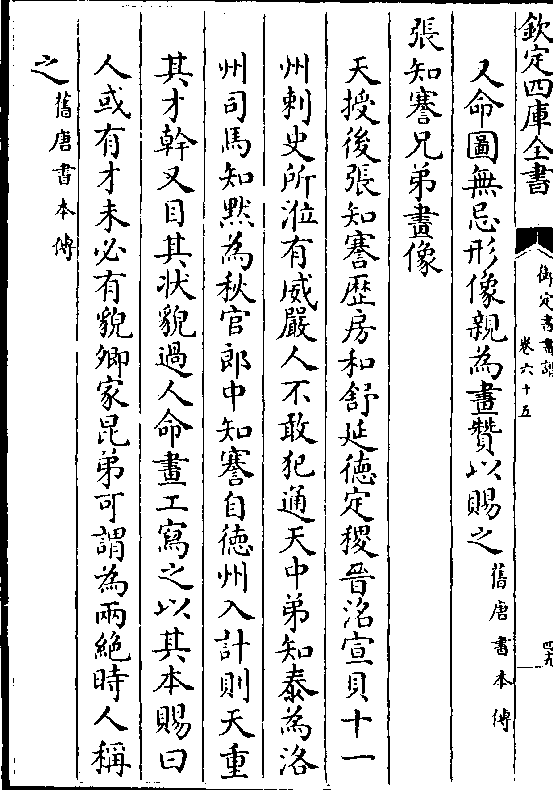 欽定四庫全書
御定書畫譜
卷六十五
四九
又命圖無忌形像親為畫贊以賜之 舊唐書本傳
張知謇兄弟畫像
天授後張知謇歴房和舒延德定稷晉洺宣貝十一
州刺史所涖有威嚴人不敢犯通天中弟知泰為洛
州司馬知黙為秋官郎中知謇自德州入計則天重
其才幹又目其状貌過人命畫工寫之以其本賜曰
人或有才未必有貌卿家昆弟可謂為兩絶時人稱
之 舊唐書本傳